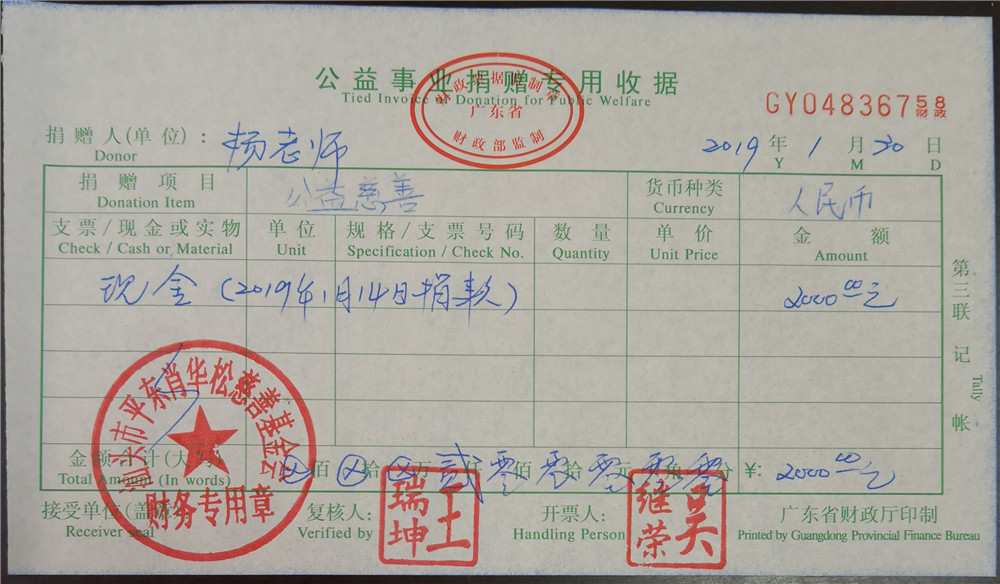 公益事业捐赠专用收据
Tied Invoice of Donation for Public Welfare
财政票据监制章
广东省
财政部监制
GY04836758
财政
捐赠人(单位):杨老师
Donor
2019年1月30日
Y M D
捐赠项目 公益慈善 货币种类 人民币
Donation Item Currency
支票/现金或实物 单位 规格/支票号码 数量 单价 金额
Check / Cash or Material Unit Specification / Check No. Quantity Unit Price Amount
现金(2019年1月14日捐款) 2000.00元
第三联 记帐
Tally
金额合计(大写) ⊗佰⊗拾⊗万贰仟零佰零拾零元零角零分 ¥:2000.00元
Total Amount (In words)
汕头市平东肖华松慈善基金会
财务专用章
接受单位(盖章): 复核人: 王瑞坤 开票人: 吴继荣 广东省财政厅印制
Receiver seal Verified by Handling Person Printed by Guangdong Provincial Finance Bureau